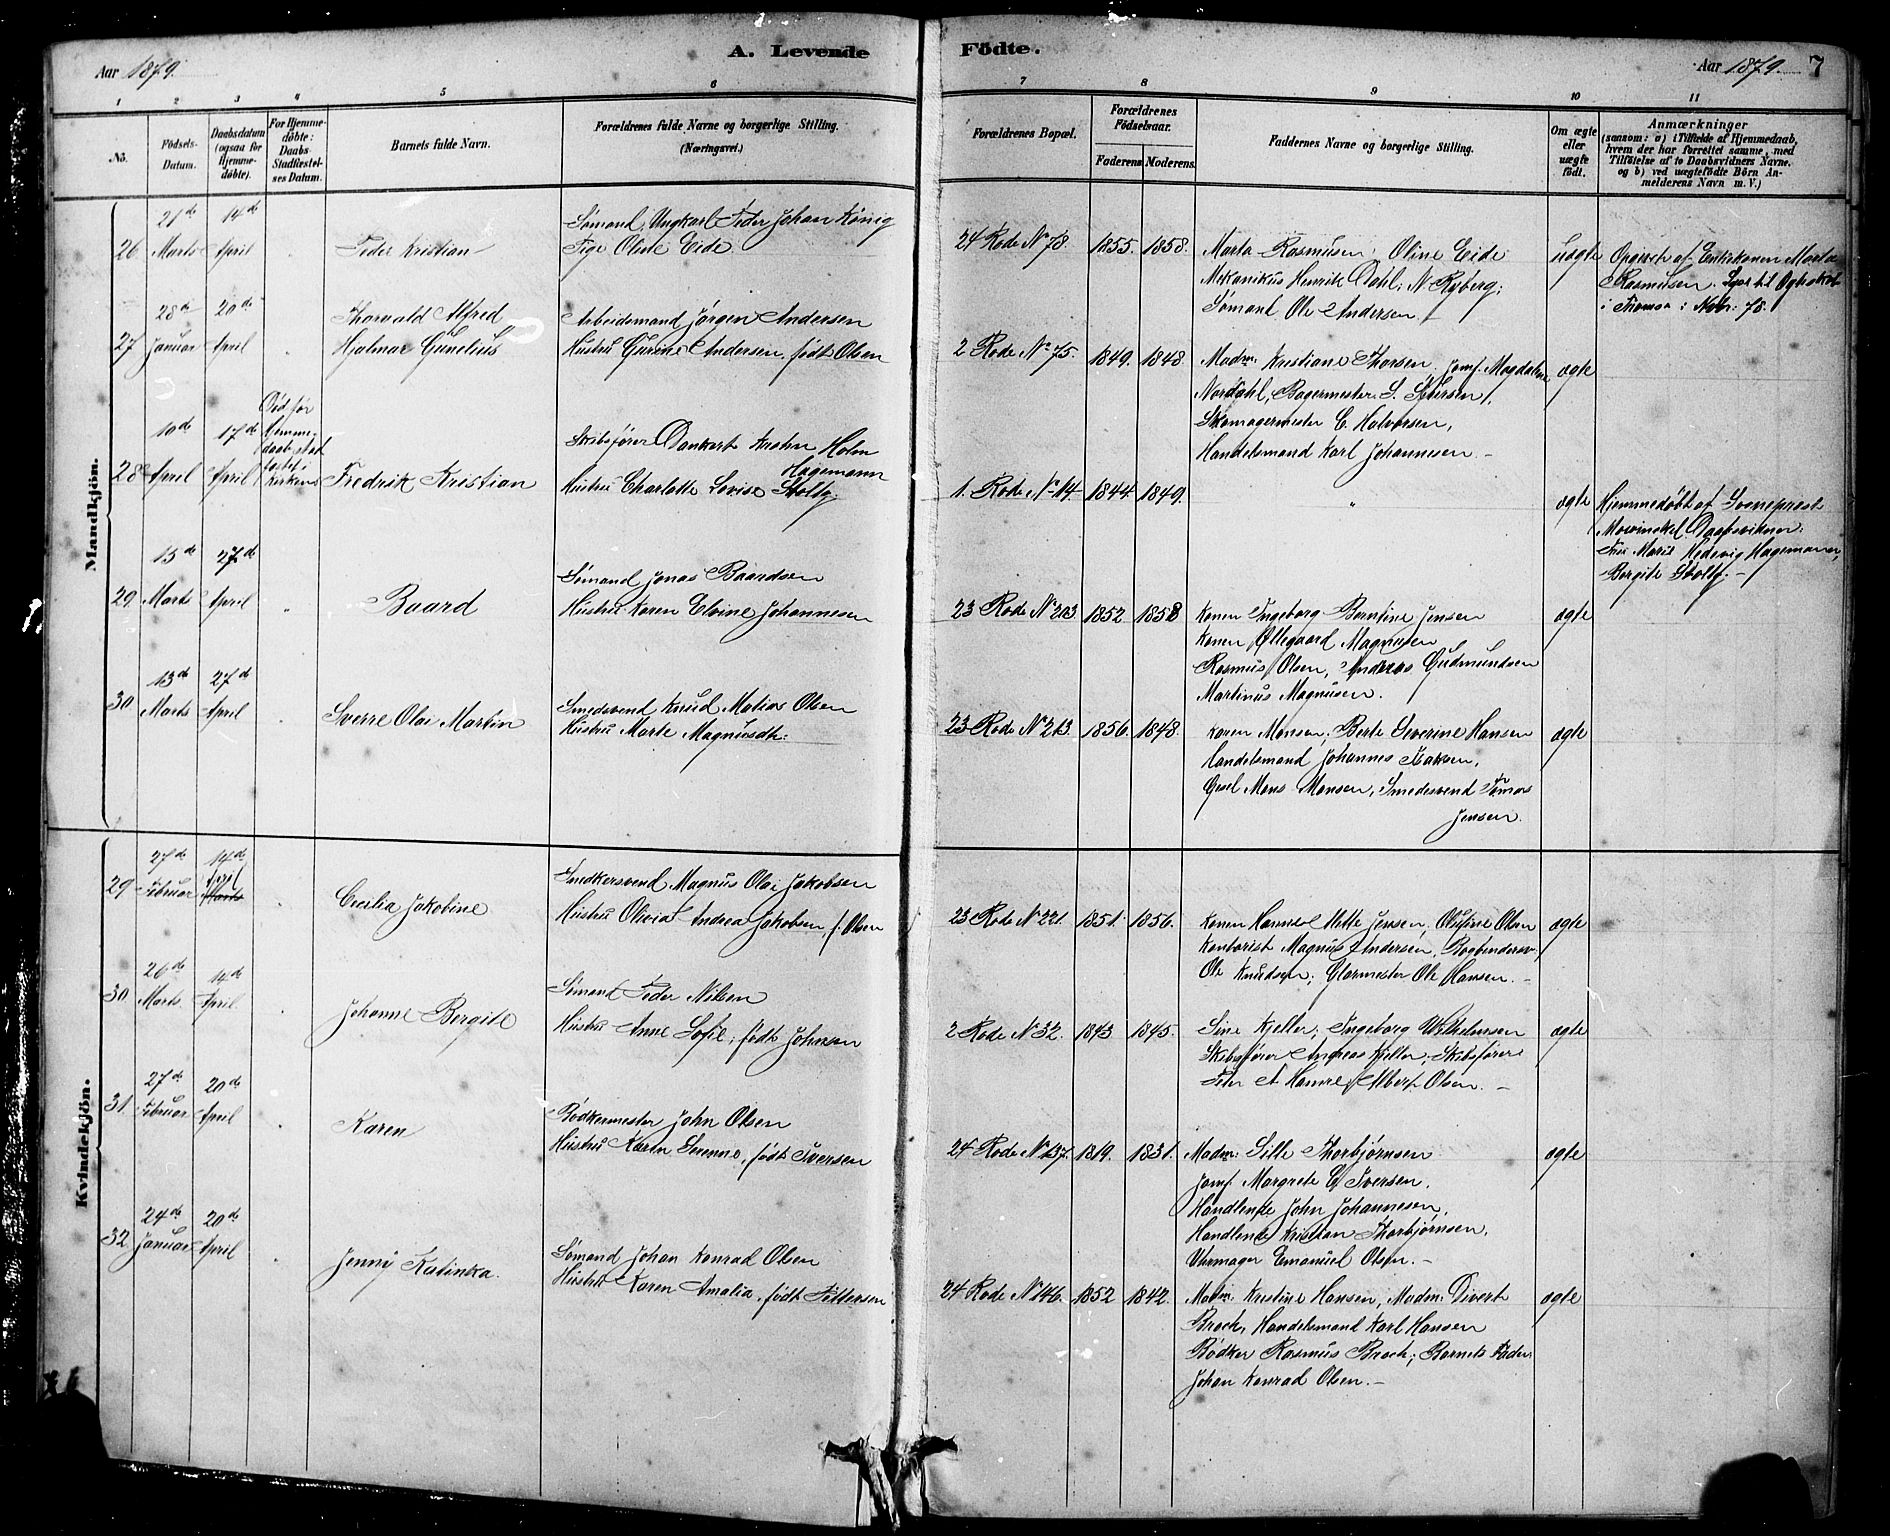 A. Levende Födte.
Aar 1879.
Aar 1879. 7
1 2 3 4 5 6 7 8 9 10 11
No. Födsels-Datum. Daabsdatum (ogsaa for Hjemmedöbte). For Hjemmedöbte: Daabs-Stadfæstelses Datum. Barnets fulde Navn. Forældrenes fulde Navne og borgerlige Stilling. (Næringsvei.) Forældrenes Bopæl. Forældrenes Födselsaar. Faderens. Moderens. Faddernes Navne og borgerlige Stilling. Om ægte eller uægte födt. Anmærkninger
(saasom: a) i Tilfælde af Hjemmedaab,
hvem der har forrettet samme, med
Tilföielse af to Daabsvidners Navne.
og b) ved uægtefödte Börn An-
melderens Navn m. V.)
Mandkjön.
26 21de Marts 14de April Peder Kristian Sømand, Ungkarl Peder Johan König
Pige Oline Eide. 24 Rode No 78. 1855. 1858. Marta Rasmusen, Oline Eide
Mekanikus Henrik Dahl; N. Ryberg;
Sømand Ole Andersen. uægte Opgivet af Enkekonen Marta
Rasmusen.
27 28de Januar 20de April Thorvald Alfred
Hjalmar Gunelius Arbeidsmand Jørgen Andersen
Hustru Gurine Andersen, født Olsen 2 Rode No 75. 1849. 1848. Madm: Kristiane Thorsen, Jomf. Magdalene
Nordahl, Bagermester S. Petersen,
Skomagermester C. Halvorsen,
Handelsmand Karl Johannesen. ægte
28 10de April 17de April Fredrik Kristian Skibsfører Dankert Krohn Holm
Hagemann
Hustru Charlotte Lovise Stoltz 1. Rode No 14. 1844. 1849. " ægte Hjemmedøbt af Sogneprest
Mowinckel
Fru Maria Hedevig Hagemann,
Bergite Stoltz.
29 15de Marts 27de April Baard Sømand Jonas Baardsen
Hustru Karen Elvine Johannesen 23 Rode No 213. 1852. 1858 Konen Ingeborg Berntine Jensen
Konen Øllegaard Magnusen
Rasmus Olsen, Andreas Gudmundsen
Martinus Magnusen. ægte
30 13de Marts 27de April Sverre Olai Martin Smedsvend Knud Matias Olsen
Hustru Marte Magnusdtr: 23 Rode No 213. 1856. 1848. Karen Monsen, Berte Severine Hansen
Handelsmand Johannes Isaksen,
Gesel Mons Monsen, Smedesvend Tomas
Jensen. ægte
Kvindekjön.
29 27de Februar 14de April Marts Cecilia Jakobine Snedkersvend Magnus Olai Jakobsen
Hustru Olivia Andrea Jakobsen, f. Olsen 23 Rode No 221. 1851. 1856. Konen Hanne Mette Jensen, Olufine Olsen
Kontorist Magnus Andersen, Bogbindersv:
Ole Knudsen; Glarmester Ole Hansen. ægte
30 26de Marts 14de April Johanne Bergite Sømand Peder Nilsen
Hustru Anne Sofie, født Johnsen 2 Rode No 32. 1843 1845. Sine Kjeller; Ingeborg Wilhelmsen
Skibsfører Andreas Kjeller, Skibsfører
Peter A Hamre, Albert Olsen. ægte
31 27de Februar 20de April Karen Bødkermester John Olsen
Hustru Karen Serene, født Iversen 24 Rode No 137. 1819. 1831. Madm: Sille Thorbjørnsen
Jomf. Margrete E. Iversen,
Handlende John Johannesen,
Handlende Kristian Thorbjørnsen,
Uhrmager Emanuel Olsen. ægte
32 24de Januar 20de April Jenny Katinka. Sømand Johan Konrad Olsen
Hustru Karen Amalia, født Pettersen 24 Rode No 146. 1852 1842. Madm: Kristine Hansen, Madm: Divert
Broch, Handelsmand Karl Hansen
Bødker Rasmus Broch; Barnets Fader
Johan Konrad Olsen. ægte